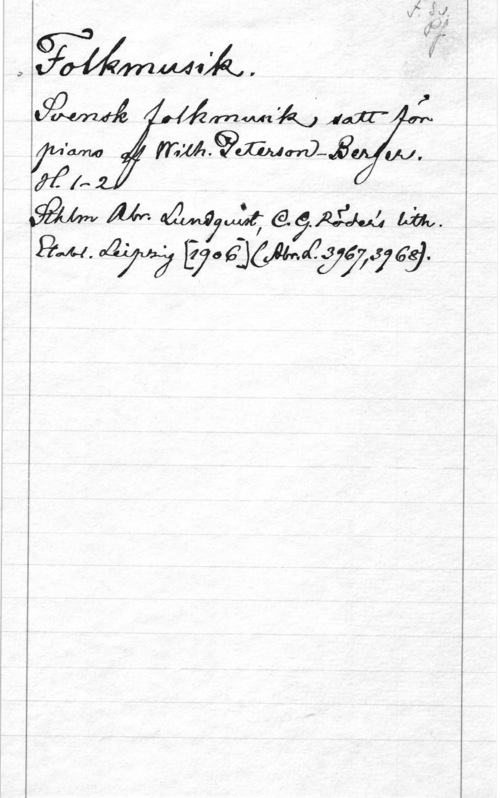 F. Sv.
Pf
Folkmusik.
Svensk folkmusik, satt för
piano af Wilh. Peterson-Berger.
H. 1-2
Sthlm Abr. Lundquist, C. G. Röder's lith.
Etabl. Leipzig [1906] (Abr. L. 3967, 3968).